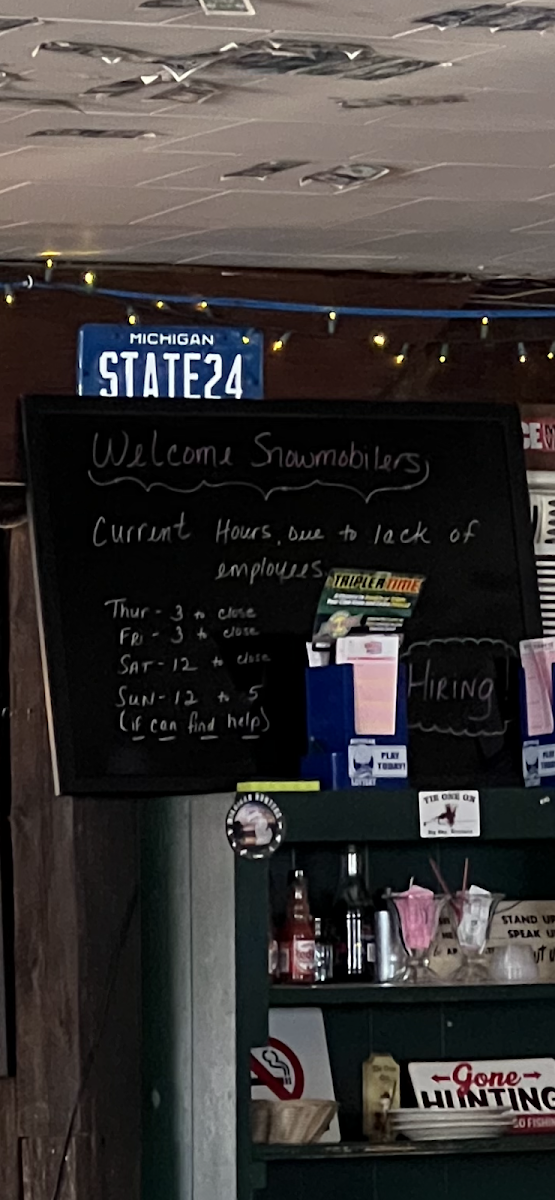 MICHIGAN
STATE24
Welcome Snowmobilers
Current Hours, Due to lack of
employees
Thur - 3 to close
Fri - 3 to close
SAT - 12 to close
SUN - 12 to 5
(if can find help)
TRIPLER TIME
HIRING
PLAY
TODAY!
TIE ONE ON
STAND UP
SPEAK U
Gone
HUNTING
GO FISHIN